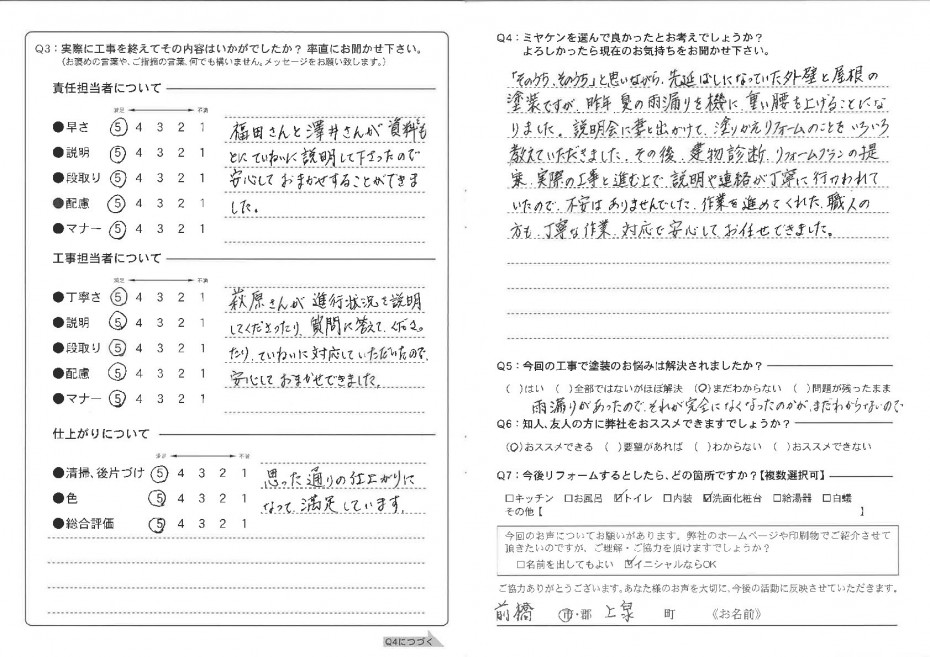 Q3：実際に工事を終えてその内容はいかがでしたか？ 率直にお聞かせ下さい。
（お褒めの言葉や、ご指摘の言葉、何でも構いません。メッセージをお願い致します。）
責任担当者について
満足 不満
●早さ ⑤ 4 3 2 1
●説明 ⑤ 4 3 2 1
●段取り ⑤ 4 3 2 1
●配慮 ⑤ 4 3 2 1
●マナー ⑤ 4 3 2 1
福田さんと澤井さんが資料も
とにていねいに説明して下さったので
安心しておまかせすることができま
した。
工事担当者について
満足 不満
●丁寧さ ⑤ 4 3 2 1
●説明 ⑤ 4 3 2 1
●段取り ⑤ 4 3 2 1
●配慮 ⑤ 4 3 2 1
●マナー ⑤ 4 3 2 1
萩原さんが進行状況を説明
してくださったり、質問に答えてくださっ
たり、ていねいに対応していただいたので、
安心しておまかせできました。
仕上がりについて
満足 不満
●清掃、後片づけ ⑤ 4 3 2 1
●色 ⑤ 4 3 2 1
●総合評価 ⑤ 4 3 2 1
思った通りの仕上がりに
なって、満足しています。
Q4につづく
Q4：ミヤケンを選んで良かったとお考えでしょうか？
よろしかったら現在のお気持ちをお聞かせ下さい。
「そのうち、そのうち」と思いながら、先延ばしになっていた外壁と屋根の
塗装ですが、昨年夏の雨漏りを機に、重い腰を上げることにな
りました。説明会に妻と出かけて、塗りかえリフォームのことをいろいろ
教えていただきました。その後、建物診断、リフォームプランの提
案、実際の工事と進む上で、説明や連絡が丁寧に行われて
いたので、不安はありませんでした。作業を進めてくれた、職人の
方も、丁寧な作業、対応で安心してお任せできました。
Q5：今回の工事で塗装のお悩みは解決されましたか？
（ ）はい （ ）全部ではないがほぼ解決 （○）まだわからない （ ）問題が残ったまま
雨漏りがあったので、それが完全になくなったのかが、まだわからないので
Q6：知人、友人の方に弊社をおススメできますでしょうか？
（○）おススメできる （ ）要望があれば （ ）わからない （ ）おススメできない
Q7：今後リフォームするとしたら、どの箇所ですか？【複数選択可】
□キッチン □お風呂 ☑トイレ □内装 ☑洗面化粧台 □給湯器 □白蟻
その他【 】
今回のお声についてお願いがあります。弊社のホームページや印刷物でご紹介させて
頂きたいのですが、ご理解・ご協力を頂けますでしょうか？
□名前を出してもよい ☑イニシャルならOK
ご協力ありがとうございます。あなた様のお声を大切に、今後の活動に反映させていただきます。
前橋 ㊞市・郡 上泉 町 《お名前》